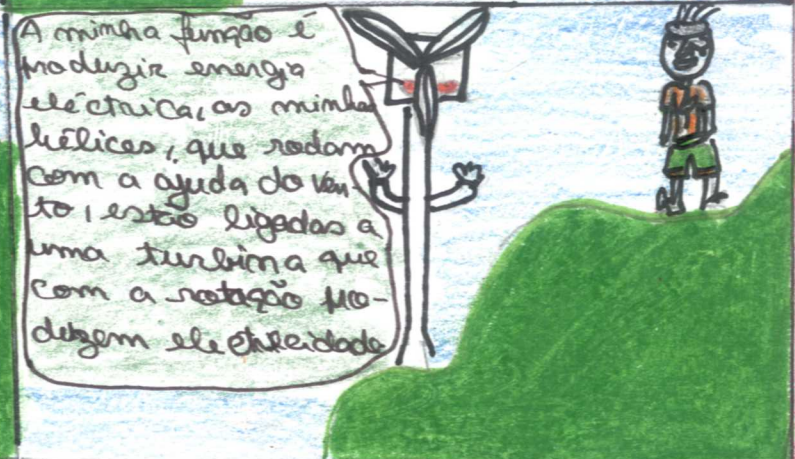 A minha função é
produzir energia
eléctrica, as minhas
hélices, que rodam
com a ajuda do ven-
to, estão ligadas a
uma turbina que
com a rotação pro-
duzem electricidade